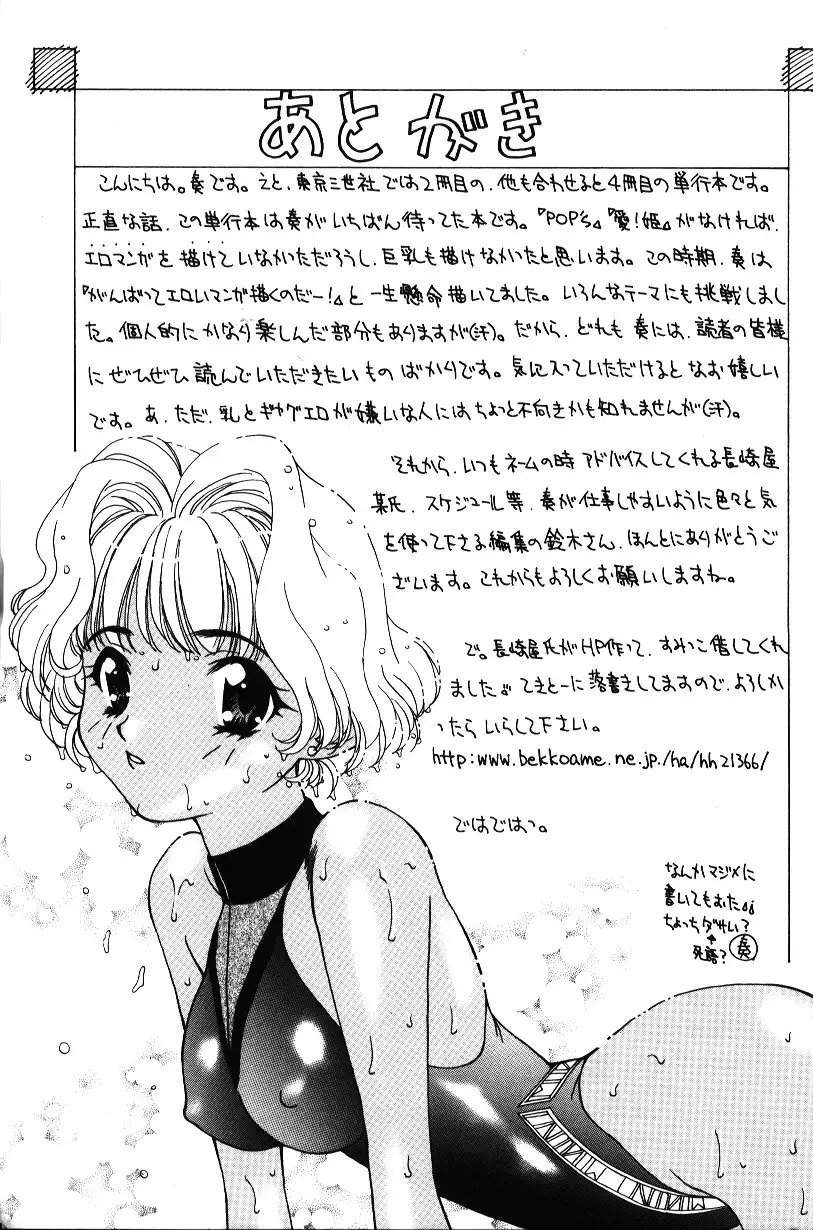 あとがき
こんにちは。奏です。えと、東京三世社では2冊目の、他も合わせると4冊目の単行本です。
正直な話、この単行本は奏がいちばん待ってた本です。『POP's』『愛!姫』がなければ、
エロマンガを描けていなかっただろうし、巨乳も描けなかったと思います。この時期、奏は
『がんばってエロいマンガ描くのだー!』と一生懸命描いてました。いろんなテーマにも挑戦しまし
た。個人的にかなり楽しんだ部分もありますが(汗)。だから、どれも奏には、読者の皆様
にぜひぜひ読んでいただきたいものばかりです。気に入っていただけるとなお嬉しい
です。あ、ただ、乳とギャグエロが嫌いな人にはちょっと不向きかも知れませんが(汗)。
それから、いつもネームの時アドバイスしてくれる長崎屋
某氏、スケジュール等、奏が仕事しやすいように色々と気
を使って下さる編集の鈴木さん、ほんとにありがとうご
ざいます。これからもよろしくお願いしますね。
で。長崎屋氏がHP作って、すみっこ借してくれ
ました♪てきとーに落書きしてますので、よろしか
ったらいらして下さい。
http:www.bekkoame.ne.jp./ha/hh21366/
ではではっ。
なんかマジメに
書いてもおた
ちょっちダサい?
↑
死語?
奏